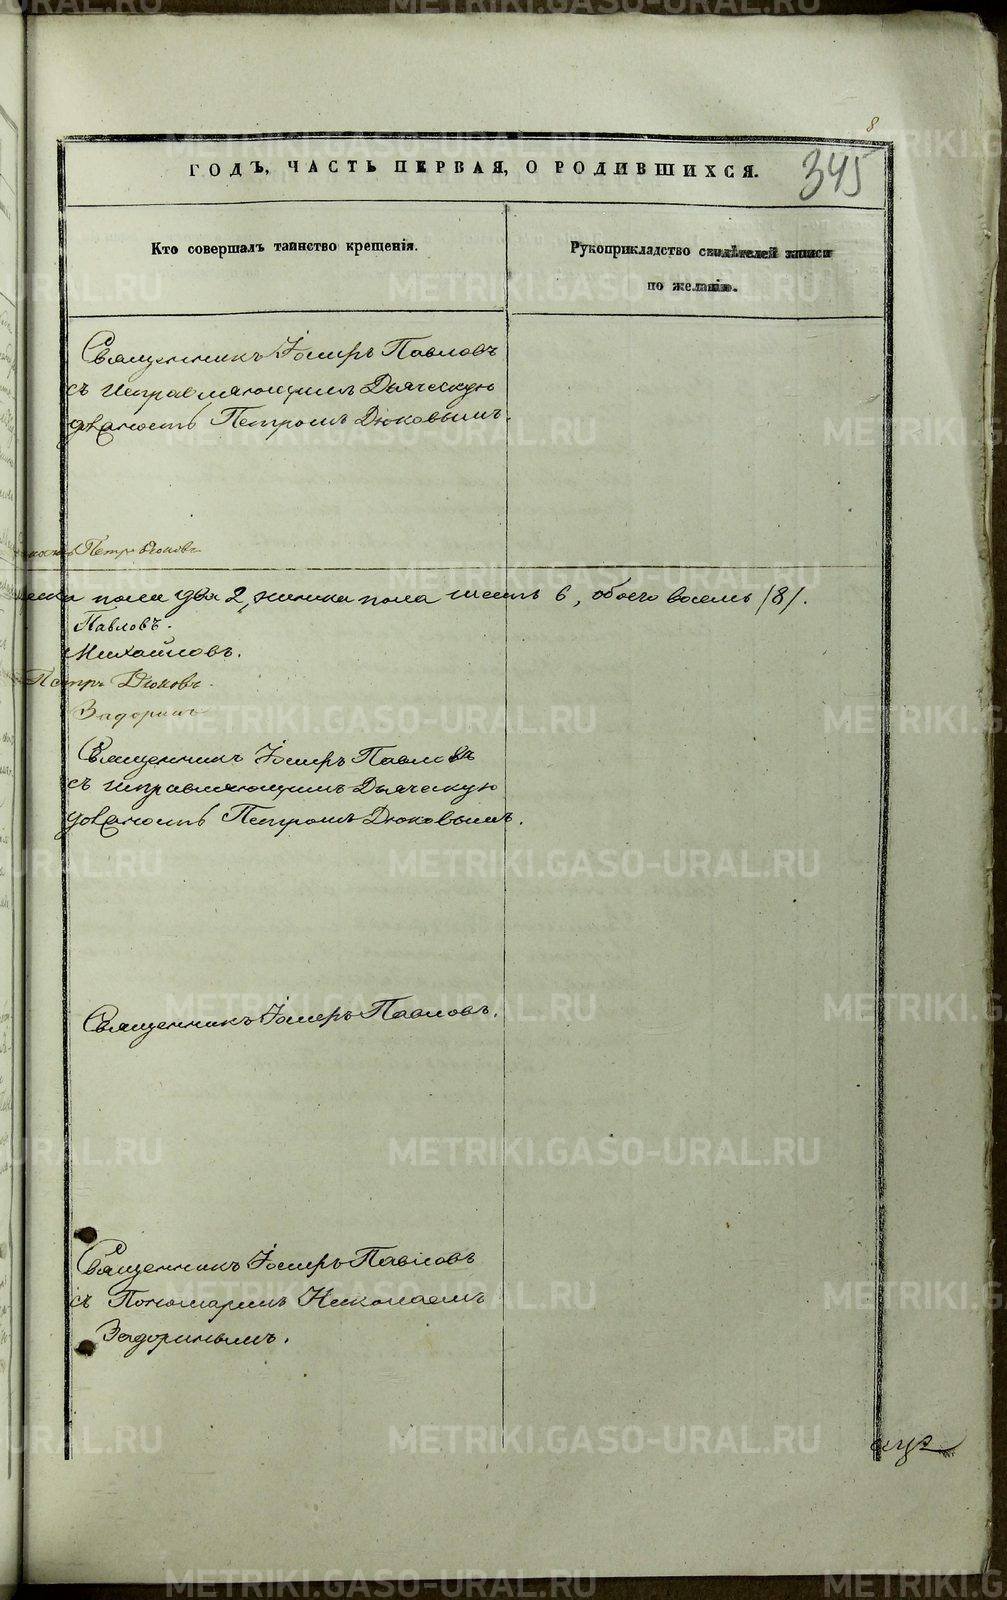 8
345
ГОДЪ, ЧАСТЬ ПЕРВАЯ, О РОДИВШИХСЯ.
Кто совершалъ таинство крещенія.
Рукоприкладство свидѣтелей записи
по желанію.
Священникъ Іосифъ Павловъ
съ исправляющимъ Дьяческую
должность Петромъ Дюковымъ.
Петръ Дюковъ
пола два 2, женска пола шесть 6, обоего восемь /8/.
Павловъ.
Михайловъ.
Петръ Дюковъ.
Задоринъ
Священникъ Іосифъ Павловъ
съ исправляющимъ Дьяческую
должность Петромъ Дюковымъ.
Священникъ Іосифъ Павловъ.
Священникъ Іосифъ Павловъ
съ Пономаремъ Николаемъ
Задоринымъ.
METRIKI.GASO-URAL.RU